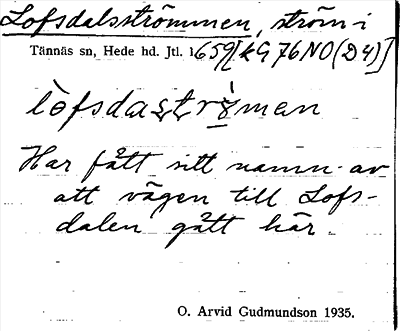 Lofsdalsströmmen, ström i
Tännäs sn, Hede hd. Jtl. 1659[kG76NO(D4)]
Har fått sitt namn av
att vägen till Lofs-
dalen gått här.
O. Arvid Gudmundson 1935.